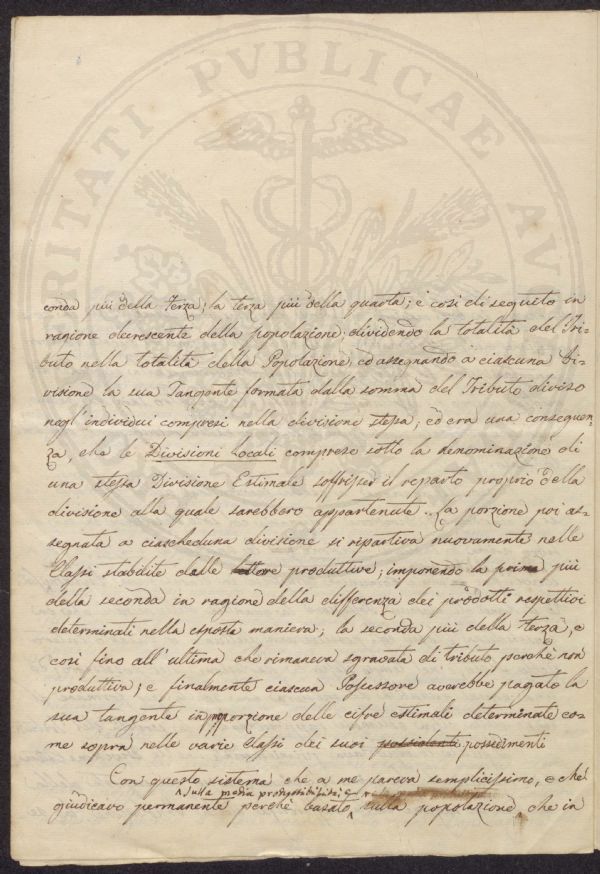 RITATI PVBLICAE AV
conda più della Terza; la terza più della quarta; e così di seguito in
ragione decrescente della popolazione; dividendo la totalità del Tri-
buto nella totalità della Popolazione, ed assegnando a ciascuna Di-
visione la sua Tangente formata dalla somma del Tributo diviso
negl'individui compresi nella divisione stessa; ed era una conseguen-
za, che le Divisioni Locali comprese sotto la denominazione di
una stessa Divisione Estimale soffrisser il reparto proprio della
divisione alla quale sarebbero appartenute. La porzione poi as-
segnata a ciascheduna divisione si ripartiva nuovamente nelle
Classi stabilite dalle produttive; imponendo la prima più
della seconda in ragione della differenza dei prodotti respettivi
determinati nella esposta maniera; la seconda più della terza, e
così fino all'ultima che rimaneva sgravata di tributo perchè non
produttiva; e finalmente ciascun Possessore averebbe pagato la
sua tangente in proporzione delle cifre estimali determinate co-
me sopra nelle varie Classi dei suoi possidenti possedimenti
Con questo sistema che a me pareva semplicissimo, e che
sulla media
giudicavo permanente perchè basato sulla popolazione, che in